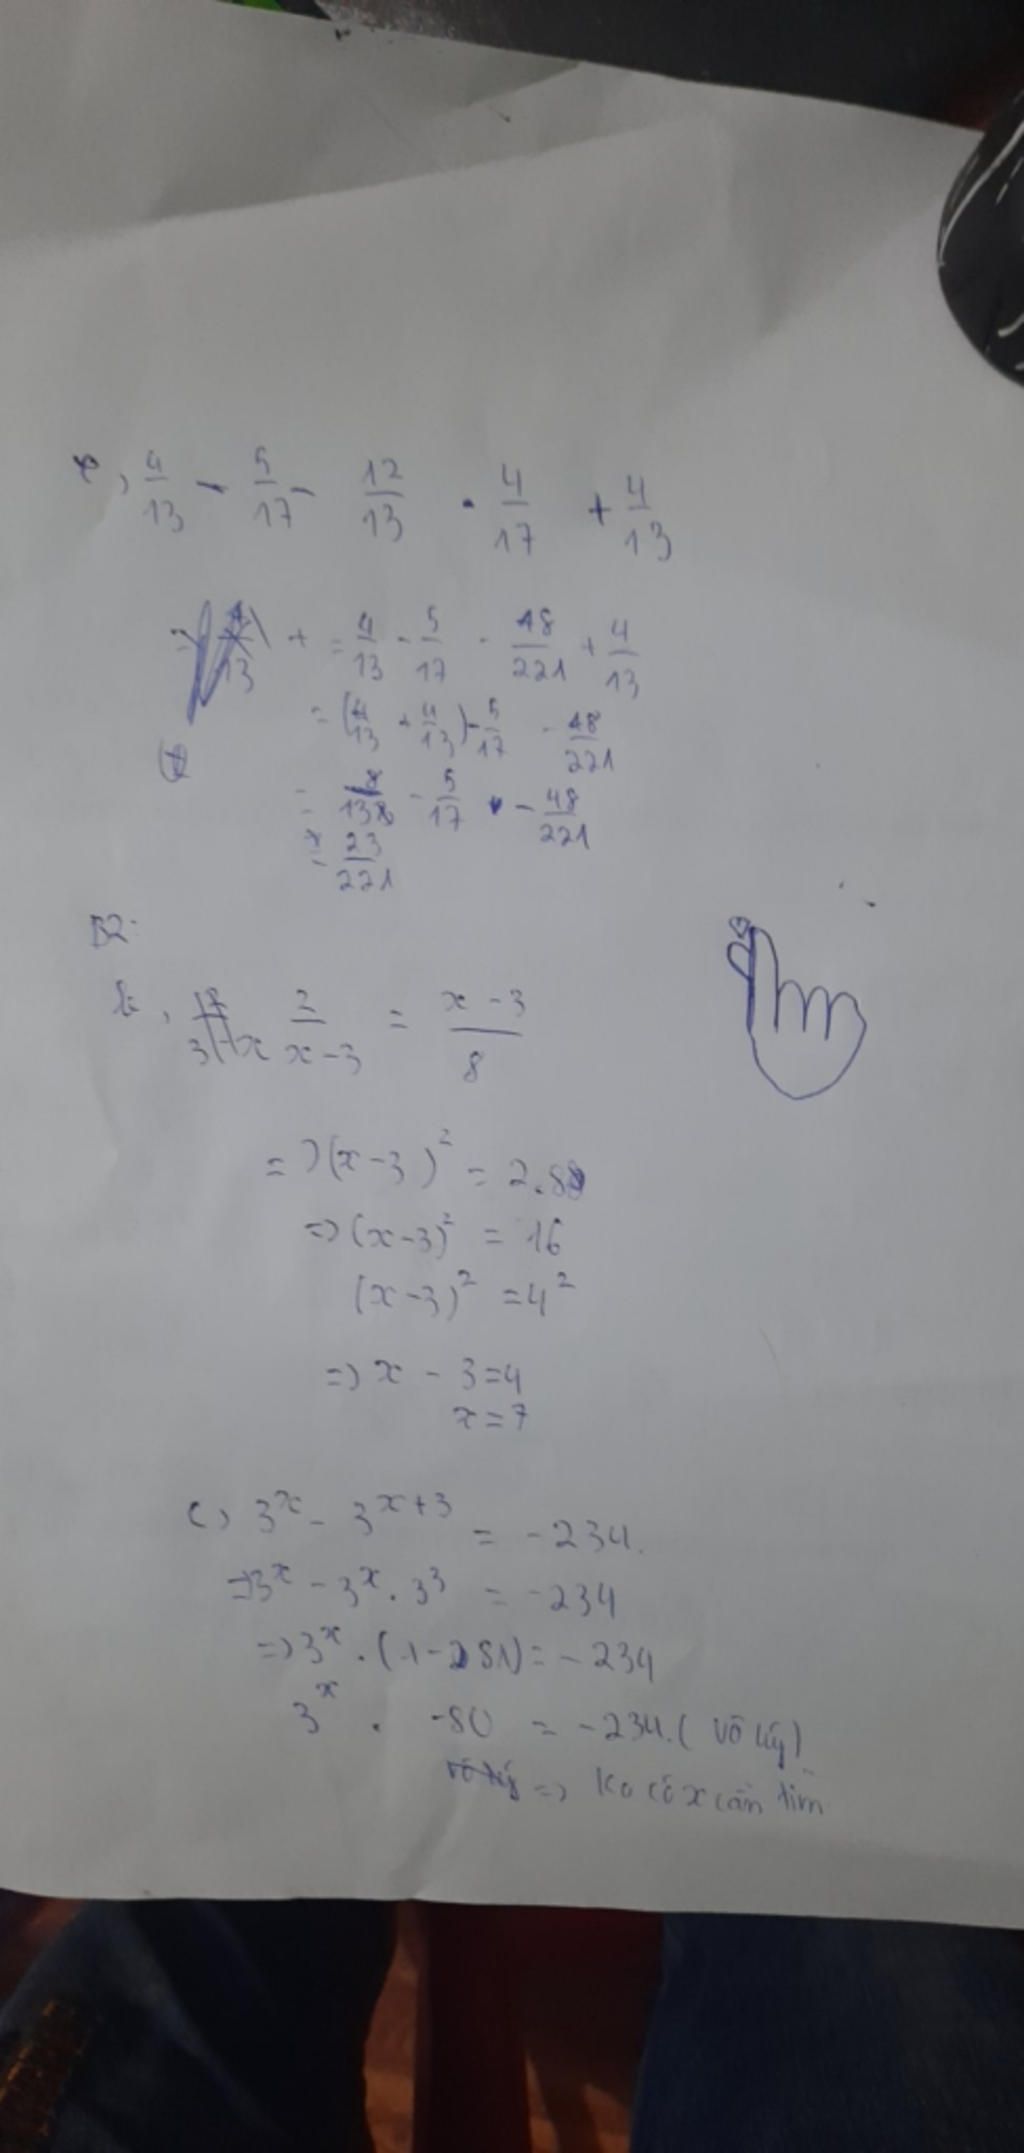 , 4/13 - 5/17 - 12/13 . 4/17 + 4/13
+ = 4/13 - 5/17 - 48/221 + 4/13
= (4/13 + 4/13) - 5/17 - 48/221
= 8/13 - 5/17 - 48/221
= 23/221
B2:
b, 2/(x-3) = (x-3)/8
=> (x-3)² = 2.8
=> (x-3)² = 16
(x-3)² = 4²
=> x - 3 = 4
x = 7
c) 3^x - 3^(x+3) = -234.
=> 3^x - 3^x . 3³ = -234
=> 3^x . (1 - 81) = -234
3^x . -80 = -234. (vô lý)
=> Ko có x cần tìm